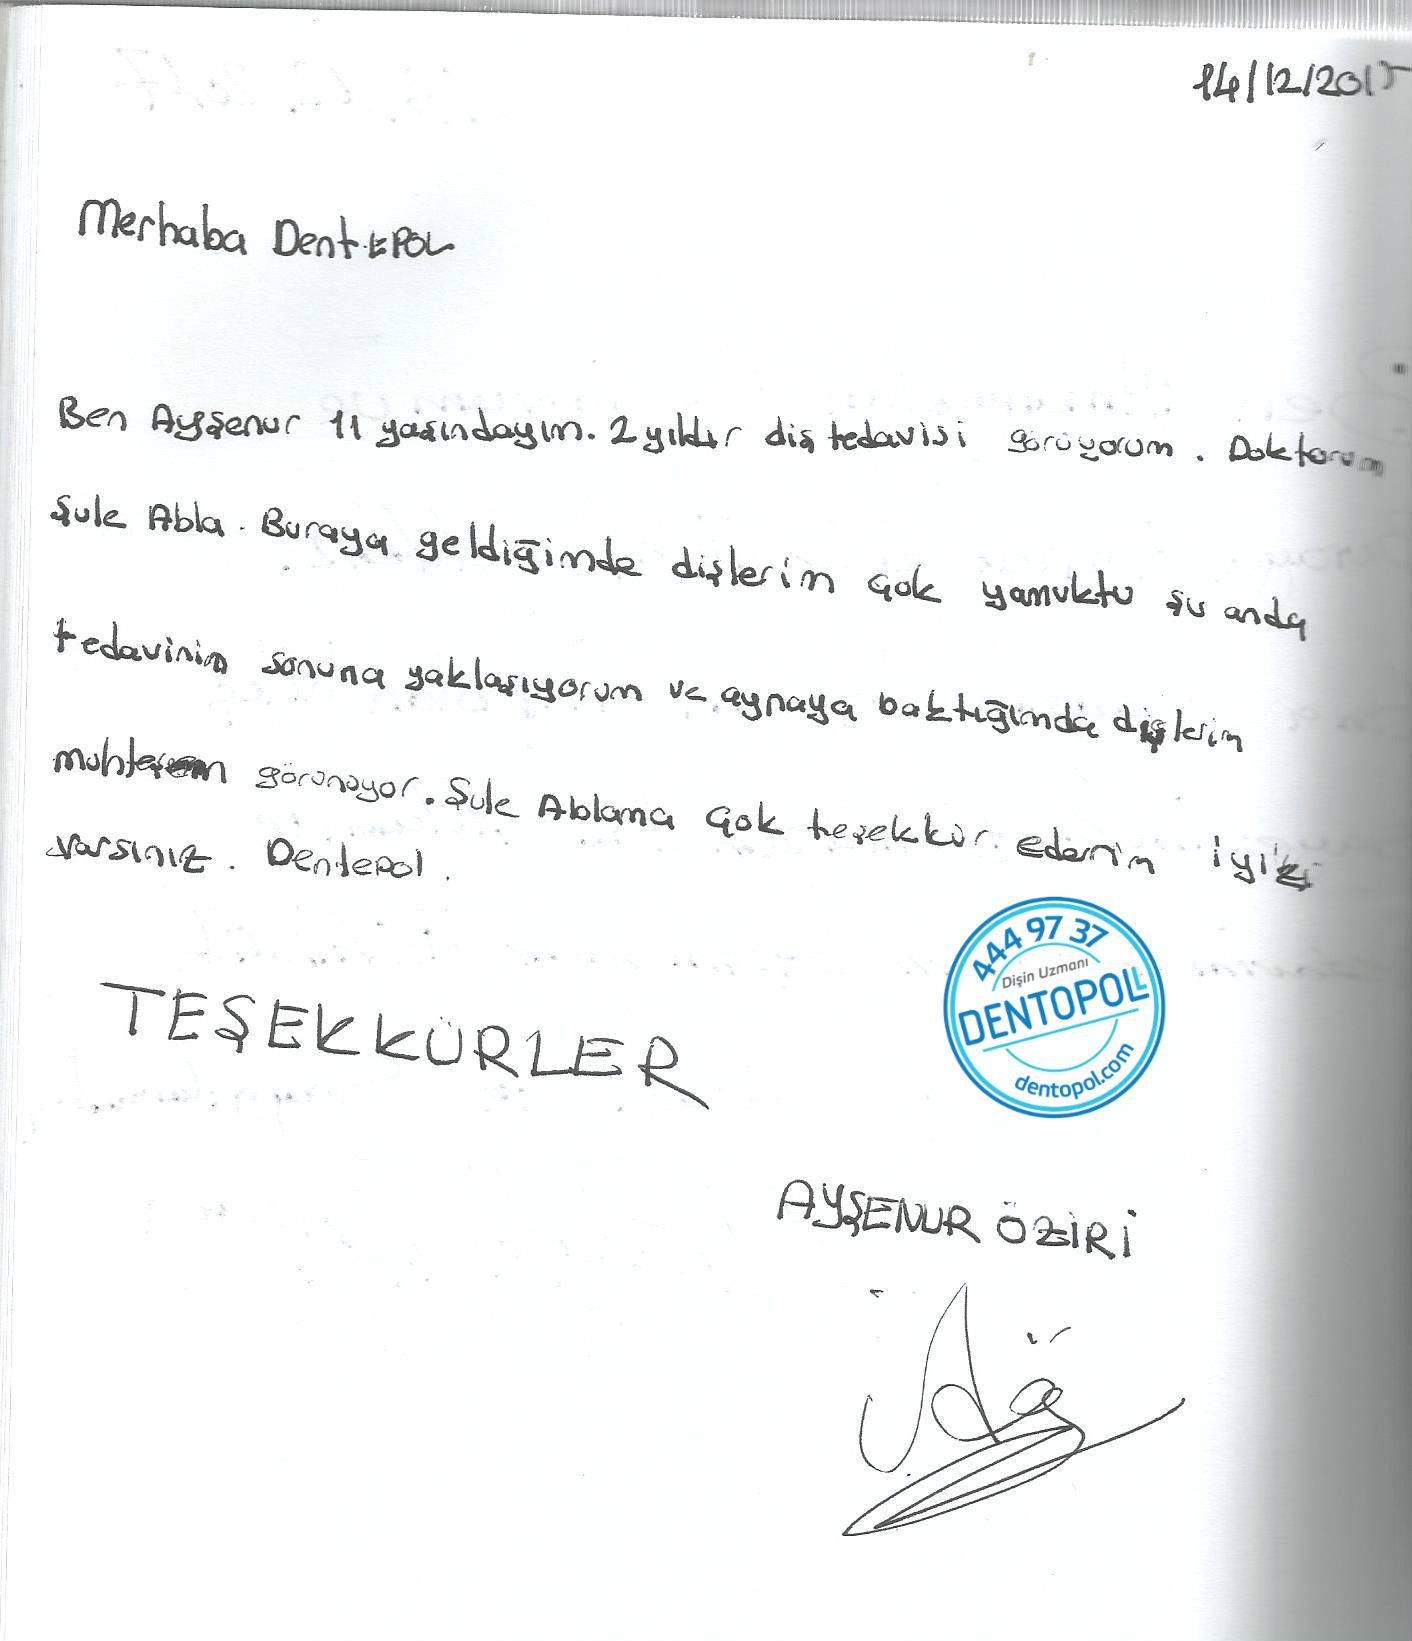 14/12/2017
Merhaba DentEPOL
Ben Ayşenur 11 yaşındayım. 2 yıldır diş tedavisi görüyorum. Doktorum
Şule Abla. Buraya geldiğimde dişlerim çok yamuktu şu anda
tedavinin sonuna yaklaşıyorum ve aynaya baktığımda dişlerim
muhteşem görünüyor. Şule Ablama çok teşekkür ederim iyiki
varsınız. Dentepol.
TEŞEKKÜRLER
444 97 37
Dişin Uzmanı
DENTOPOL
dentopol.com
AYŞENUR ÖZİRİ